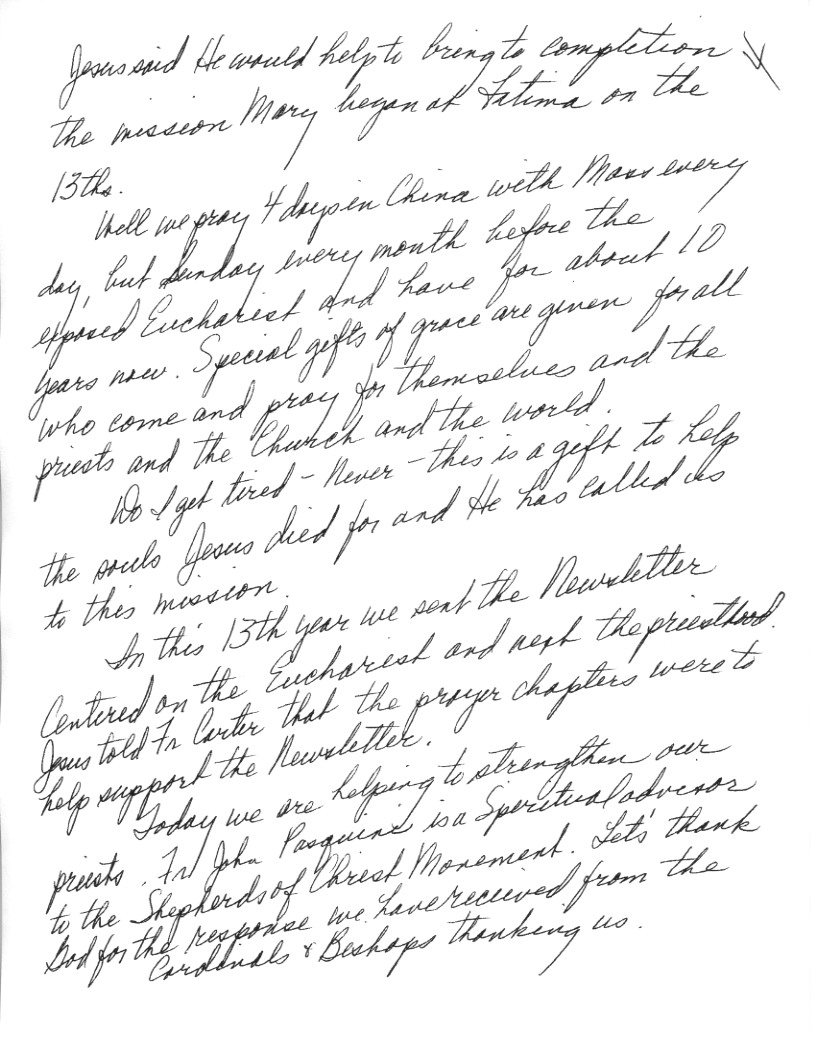 Jesus said He would help to bring to completion
the mission Mary began at Fatima on the
13ths.
Well we pray 4 days in China with Mass every
day, but Sunday every month before the
exposed Eucharist and have for about 10
years now. Special gifts of grace are given for all
who come and pray for themselves and the
priests and the Church and the world.
Do I get tired - Never - this is a gift to help
the souls Jesus died for and He has called us
to this mission.
In this 13th year we sent the Newsletter
Centered on the Eucharist and next the priesthood.
Jesus told Fr Carter that the prayer chapters were to
help support the Newsletter.
Today we are helping to strengthen our
priests. Fr John Pasquini is a Speritual advisor
to the Shepherds of Christ Movement. Let's thank
God for the response we have recieved from the
Cardinals & Beshops thanking us.